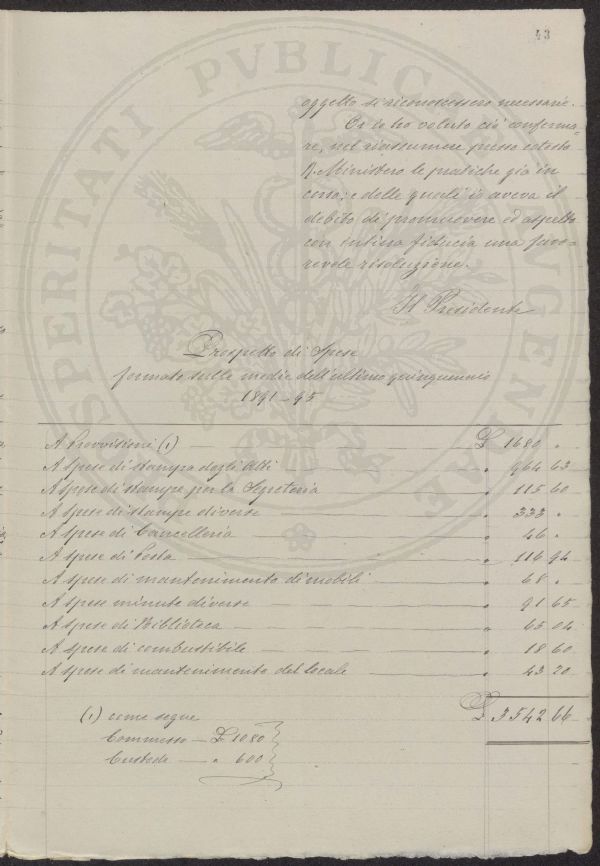 43
PROSPERITATI PVBLICAE AVGENDAE
oggetto si riconoscessero necessarie.
Or io ho voluto ciò conferma=
re, nel riassumere presso codesto
R. Ministero le pratiche già in
corso; e delle quali io aveva il
debito di promuovere ed aspetto
con intiera fiducia una favo=
revole risoluzione.
Il Presidente
Prospetto di Spese
formato sulle medie dell'ultimo quinquennio
1891-95
A Provvisioni (1) — £ 1680 "
A spese di stampa degli Atti — " 964 63
A spese di stampe per la Segreteria — " 115 60
A spese di stampe diverse — " 333 "
A spese di Cancelleria — " 46 "
A spese di Posta — " 116 94
A spese di mantenimento di mobili — " 68 "
A spese minute diverse — " 91 65
A spese di Biblioteca — " 65 04
A spese di combustibile — " 18 60
A spese di mantenimento del locale — " 43 20
£ 3542 66
(1) come segue
Commesso — £ 1080
Custode — " 600